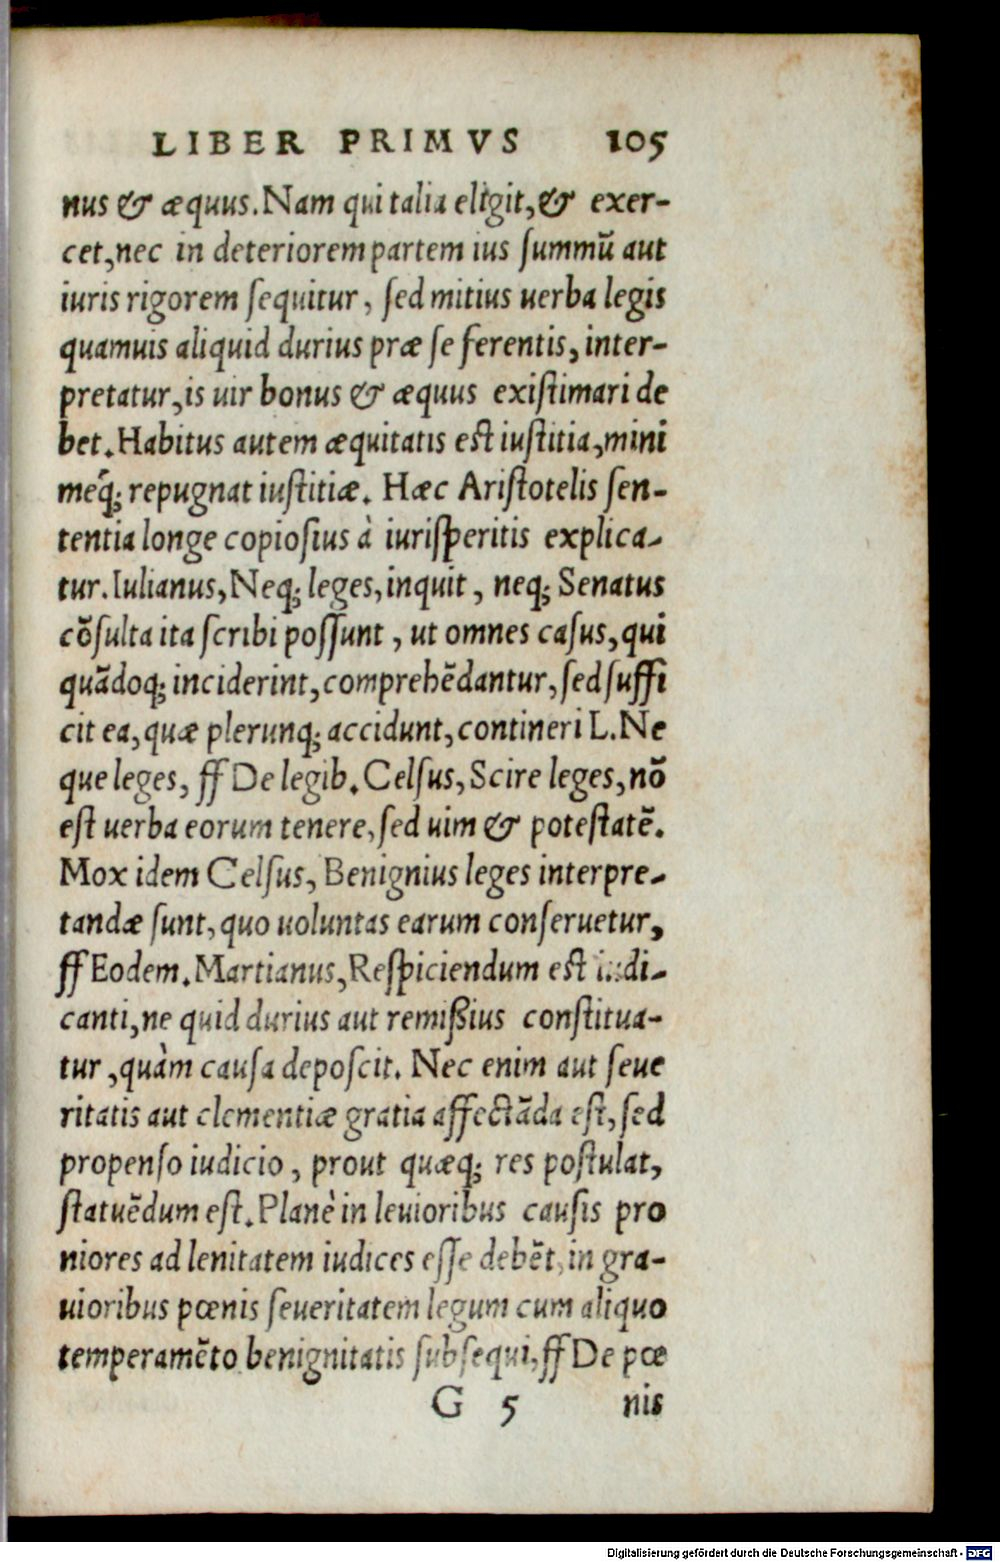 LIBER PRIMVS 105
nus & æquus. Nam qui talia eligit, & exer-
cet, nec in deteriorem partem ius ſummũ aut
iuris rigorem ſequitur, ſed mitius uerba legis
quamuis aliquid durius præ ſe ferentis, inter-
pretatur, is uir bonus & æquus exiſtimari de
bet. Habitus autem æquitatis eſt iuſtitia, mini
meq́; repugnat iuſtitiæ. Hæc Ariſtotelis ſen-
tentia longe copioſius à iuriſperitis explica-
tur. Iulianus, Neq; leges, inquit, neq; Senatus
cõſulta ita ſcribi poſſunt, ut omnes caſus, qui
quãdoq; inciderint, comprehẽdantur, ſed ſuffi
cit ea, quæ plerunq; accidunt, contineri L. Ne
que leges, ff De legib. Celſus, Scire leges, nõ
eſt uerba eorum tenere, ſed uim & poteſtatẽ.
Mox idem Celſus, Benignius leges interpre-
tandæ ſunt, quo uoluntas earum conſeruetur,
ff Eodem. Martianus, Reſpiciendum eſt iudi-
canti, ne quid durius aut remiſsius conſtitua-
tur, quàm cauſa depoſcit. Nec enim aut ſeue
ritatis aut clementiæ gratia affectãda eſt, ſed
propenſo iudicio, prout quæq; res poſtulat,
ſtatuẽdum eſt. Planè in leuioribus cauſis pro
niores ad lenitatem iudices eſſe debẽt, in gra-
uioribus pœnis ſeueritatem legum cum aliquo
temperamẽto benignitatis ſubſequi, ff De pœ
G 5 nis
Digitalisierung gefördert durch die Deutsche Forschungsgemeinschaft - DFG